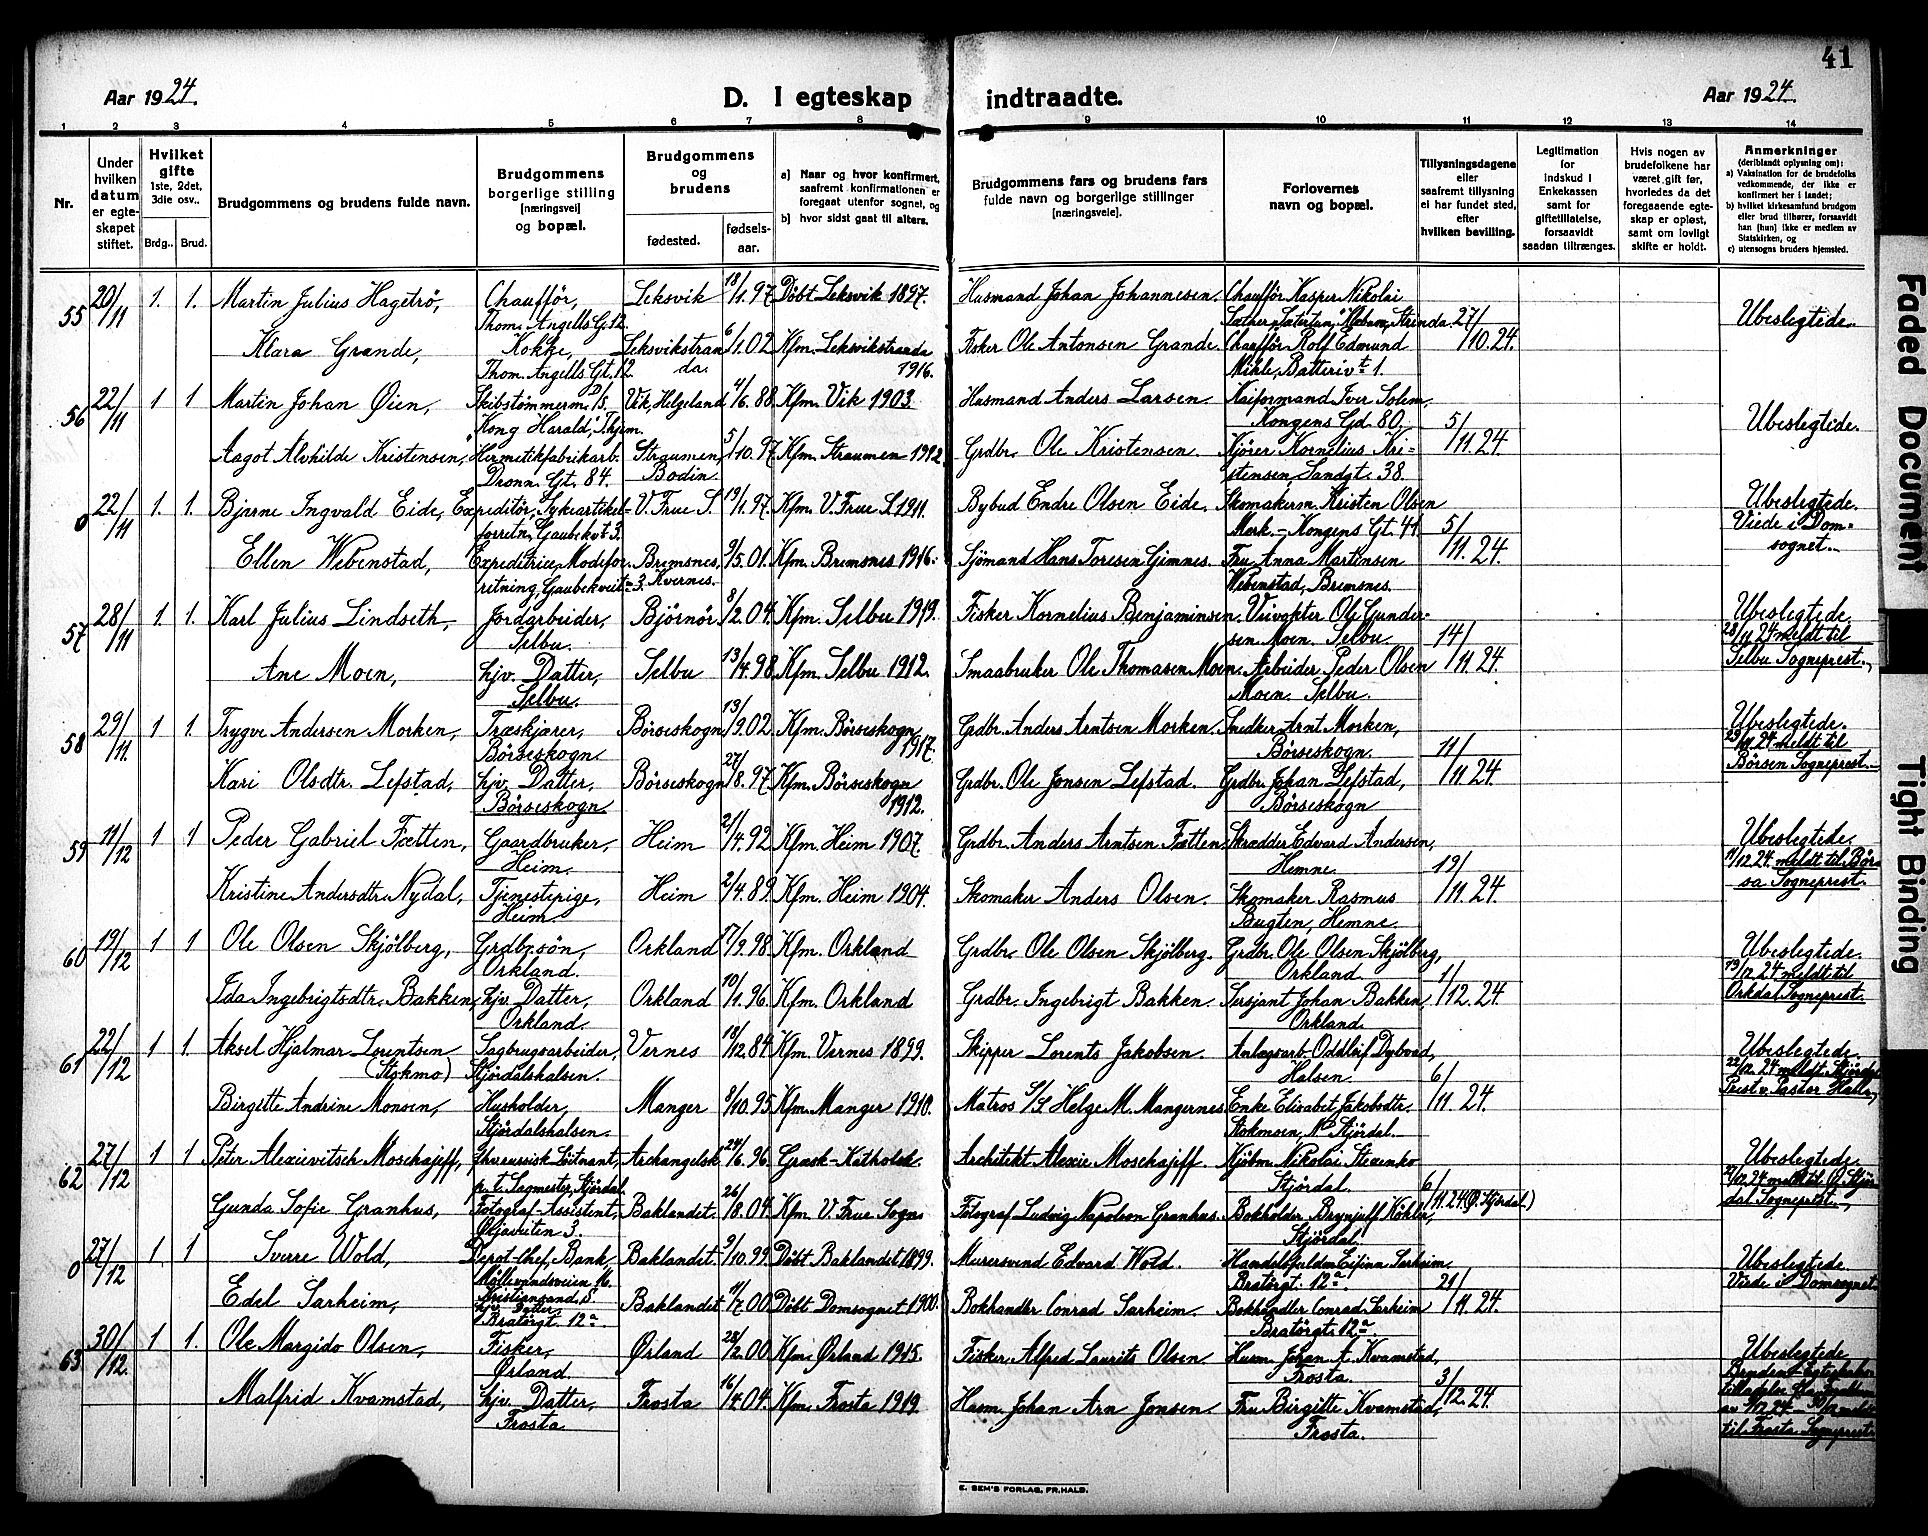 41
Aar 1924.
D. I egteskap indtraadte.
Aar 1924.
1 2 3 4 5 6 7 8 9 10 11 12 13 14
Nr.
Under hvilken datum er egteskapet stiftet.
Hvilket gifte 1ste, 2det, 3die osv..
Brdg.. Brud.
Brudgommens og brudens fulde navn.
Brudgommens borgerlige stilling (næringsvei) og bopæl.
Brudgommens og brudens
fødested.
fødsels-aar.
a) Naar og hvor konfirmert, saafremt konfirmationen er foregaat utenfor sognet, og
b) hvor sidst gaat til alters.
Brudgommens fars og brudens fars fulde navn og borgerlige stillinger (næringsveie).
Forlovernes navn og bopæl.
Tillysningsdagene eller saafremt tillysning ei har fundet sted, efter hvilken bevilling.
Legitimation for indskud i Enkekassen samt for giftetillatelse, forsaavidt saadan tiltrænges.
Hvis nogen av brudefolkene har været gift før, hvorledes da det foregaaende egteskap er opløst, samt om lovligt skifte er holdt.
Anmerkninger (deriblandt oplysning om):
a) Vaksination for de brudefolks vedkommende, der ikke er konfirmert her i landet;
b) hvilket kirkesamfund brudgom eller brud tilhører, forsaavidt han (hun) ikke er medlem av Statskirken, og
c) utensogns bruders hjemsted.
55 20/11 1. 1. Martin Julius Hagetrö, Chaufför, Leksvik 18/1.97 Döbt Leksvik 1897. Husmand Johan Johannesen. Chaufför Kasper Nikolai
Thom. Angells G. 12. Strinda. 27/10.24. Ubeslegtede.
Klara Grande, Kokke, Leksvikstranda. 6/1.02 Kfm. Leksvikstranda 1916. Fisker Ole Antonsen Grande. Chaufför Rolf Edmund
Thom. Angells Gt. 12. Mihle, Batterivt 1.
56 22/11 1 1 Martin Johan Øien, Skibstømmerm. D/S. Vik, Helgeland 4/6.88 Kfm. Vik 1903. Husmand Anders Larsen. Kaiformand Iver Solem,
"Kong Harald," Thjem. Kongens Gd. 80. 5/11.24. Ubeslegtede.
Aagot Alvhilde Kristensen, Hermetikfabrikarb. Straumen, Bodin. 5/10.97 Kfm. Straumen 1912. Grdbr. Ole Kristensen. Kjörer Kornelius Kri-
Dronn. Gt. 84. stensen, Sandgt. 38.
0 22/11 1. 1. Bjarne Ingvald Eide, Expeditör, Sykeartikel- V. Frue S. 19/1.97 Kfm. V. Frue S. 1911. Bybud Endre Olsen Eide. Skomakerm. Kristen Olsen
forretn, Gaubekvt 3. Mork. - Kongens Gt. 41. 5/11.24. Ubeslegtede. Viede i Dom-
sognet.
Ellen Webenstad, Expeditrice, Modefor- Bremsnes, Kvernes. 9/5.01. Kfm. Bremsnes 1916. Sjömand Hans Toresen Gimnes. Fru Anna Martinsen
retning, Gaubekveit 3. Webenstad, Bremsnes.
57 28/11 1. 1. Karl Julius Lindseth, Jordarbeider, Björnör 8/2.04 Kfm. Selbu 1919. Fisker Kornelius Benjaminsen. Veivokter Ole Gunder-
Selbu. sen Moen. Selbu. 14/11.24. Ubeslegtede.
28/11 24 meldt til
Ane Moen, hjv. Datter, Selbu 13/4.98 Kfm. Selbu 1912. Smaabruker Ole Thomasen Moen. Arbeider Peder Olsen Selbu Sogneprest.
Selbu. Moen. Selbu.
58 29/11. 1 1. Trygve Andersen Morken, Træskjærer, Börseskogn 13/9.02 Kfm. Börseskogn 1917. Grdbr. Anders Arntsen Morken. Snedker Arnt Morken,
Börseskogn. Börseskogn. 11/11.24. Ubeslegtede.
29/11 24 meldt til
Kari Olsdtr. Lefstad, hjv. Datter, Börseskogn 27/8.97 Kfm. Börseskogn 1912. Grdbr. Ole Jonsen Lefstad. Grdbr. Johan Lefstad, Börsen Sogneprest.
Börseskogn Börseskogn
59 11/12 1 1. Peder Gabriel Fætten, Gaardbruker, Heim 21/4.92 Kfm. Heim 1907. Grdbr. Anders Arntsen Fætten. Skrædder Edvard Andersen,
Heim. Hemne. 19/11.24. Ubeslegtede.
11/12 24. meldt til Bör-
Kristine Andersdtr. Nydal, Tjenestepige, Heim 2/4.89 Kfm. Heim 1904. Skomaker Anders Olsen. Skomaker Rasmus sa Sogneprest.
Heim. Bugten, Hemne.
60 19/12 1 1 Ole Olsen Skjölberg, Grdbr. sön, Orkland 17/9.98 Kfm. Orkland Grdbr. Ole Olsen Skjölberg. Grdbr. Ole Olsen Skjölberg,
Orkland. Orkland. 1/12.24. Ubeslegtede.
19/12 24 meldt til
Ida Ingebrigtsdtr. Bakken, hjv. Datter, Orkland 10/1.96. Kfm. Orkland Grdbr. Ingebrigt Bakken. Sersjant Johan Bakken, Orkdal Sogneprest.
Orkland. Orkland.
61 22/12 1 1. Aksel Hjalmar Lorentsen Sagbrugsarbeider, Vernes 18/12.84 Kfm. Vernes 1899. Skipper Lorents Jakobsen. Anlægsarb. Oddleif Dybvad,
(Stokmo) Stjördalshalsen. Halsen. 6/11.24. Ubeslegtede.
22/12. 24 meldt Stjördal
Birgitte Andrine Monsen, Husholder, Manger 8/10.95 Kfm. Manger 1910. Matros S/S Helge M. Mangernes. Enke Elisabet Jakobsdtr. Prest v. Pastor Halle,
Stjördalshalsen. Stokmoen, N. Stjördal.
62 27/12 1 1 Peter Alexievitsch Moschajeff, fhv. russisk Löitnant, Archangelsk 24/6.96. Græsk-Katholsk. Architekt Alexie Moschajeff. Kjöbm. Nikolai
p. t. Sagmester, Stjördal. Stjördal. 6/11.24 (Ø. Stjördal) Ubeslegtede
27/12 24 meldt til Ø. Stjör-
dal Sogneprest.
Gunda Sofie Granhus, Fotograf-Assistent, Baklandet. 26/8.04 Kfm. V. Frue Sogn Fotograf Ludvig Napoleon Granhus. Bokholder Brynjulf Köhler,
Stjördal.
0 27/12 1. 1 Sverre Wold, Depot-chef, Bank, Baklandet. 9/10.99 Döbt Baklandet 1899. Murersvend Edvard Wold. Handelsfuldm. Eifinn Sarheim,
Möllevandsveien 16, Kristiansand, S. Bratörgt. 12a. 21/11.24. Ubeslegtede.
Viede i Domsognet.
Edel Sarheim, hjv. Datter, Baklandet 11/7.00 Döbt Domsognet 1900. Bokhandler Conrad Sarheim. Bokhandler Conrad Sarheim
Bratörgt. 12a. Bratörgt. 12a.
63 30/12. 1 1. Ole Margido Olsen, Fisker, Ørland 28/2.00 Kfm. Ørland 1915. Fisker Alfred Laurits Olsen Husm. Johan A. Kvamstad,
Ørland. Frosta. 3/12.24. Ubeslegtede
Malfrid Kvamstad, hjv. Datter, Frosta 16/1.04. Kfm. Frosta 1919. Husm. Johan Arn Jonsen. Fru Birgitte Kvamstad,
Frosta Frosta. til Frosta Sogneprest.
E. SEM'S FORLAG, FR.HALD.
Faded Document
Tight Binding